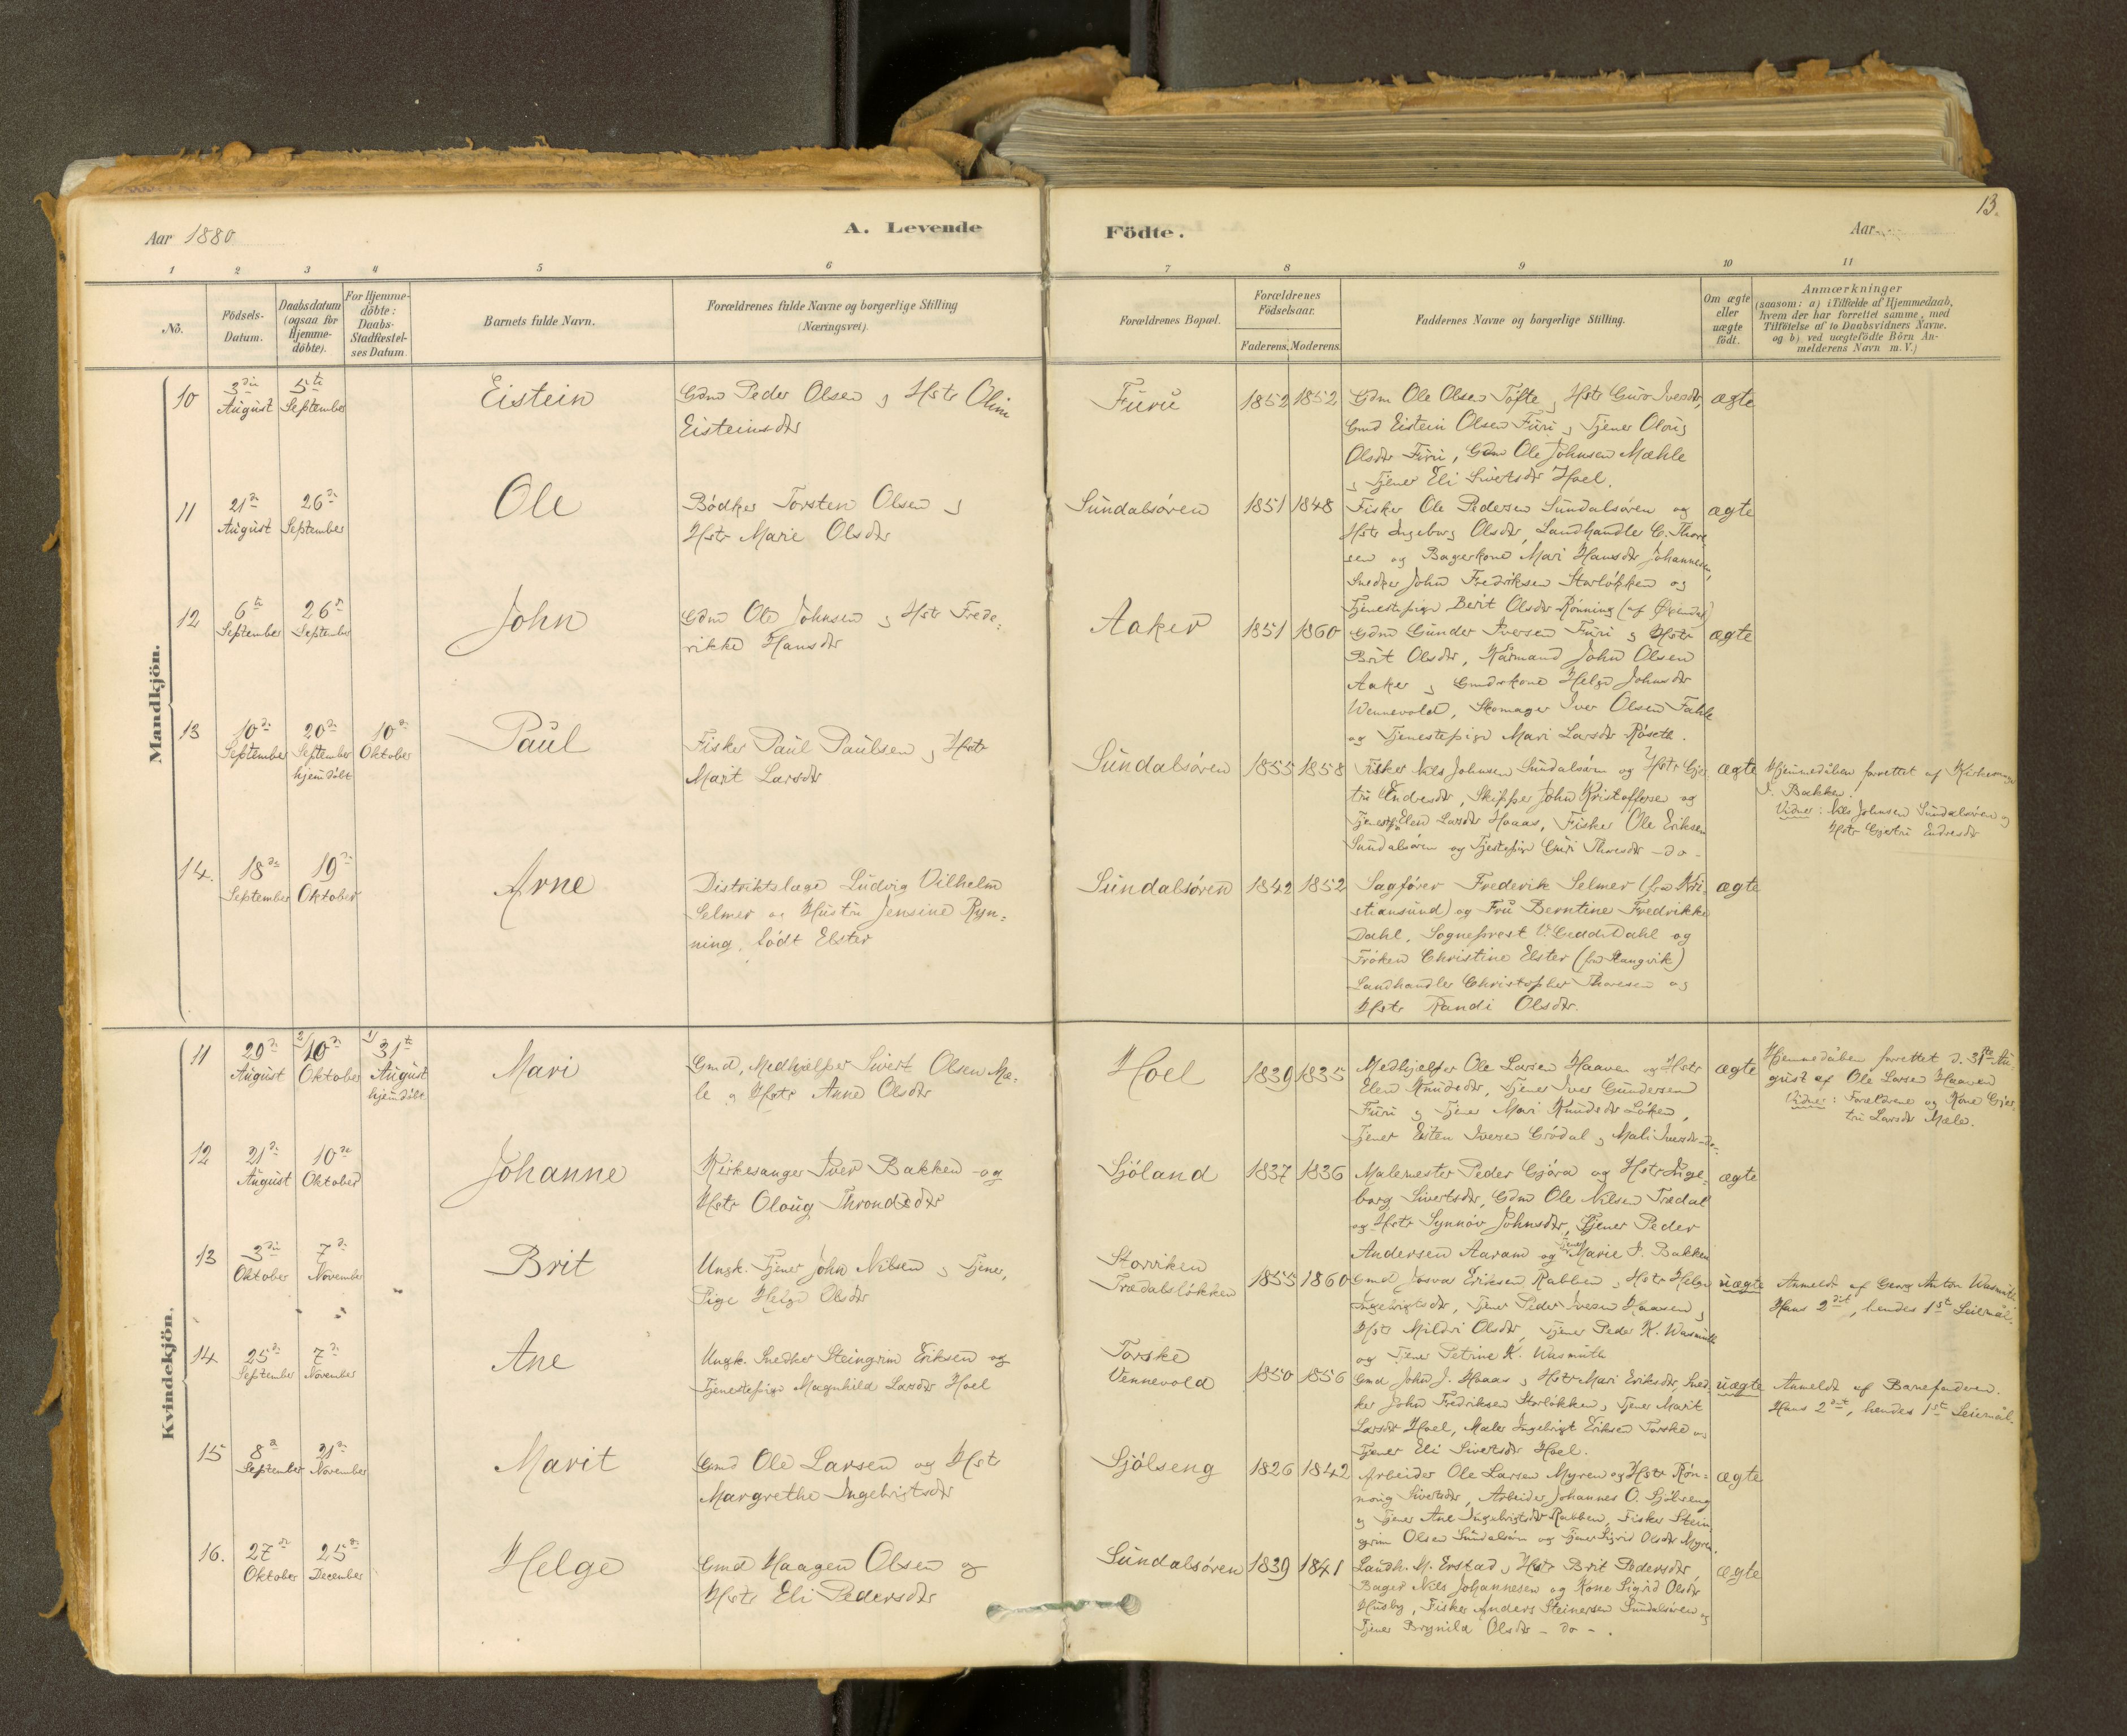 13.
Aar 1880
A. Levende
Födte.
Aar
1 2 3 4 5 6 7 8 9 10 11
No.
Födsels-
Datum.
Daabsdatum
(ogsaa for
Hjemme-
döbte).
For Hjemme-
döbte:
Daabs-
Stadfæstel-
ses Datum
Barnets fulde Navn.
Forældrenes fulde Navne og borgerlige Stilling
(Næringsvei).
Forældrenes Bopæl.
Forældrenes
Födselsaar.
Faderens. Moderens.
Faddernes Navne og borgerlige Stilling.
Om ægte
eller
uægte
födt.
Anmærkninger
(saasom: a) i Tilfælde af Hjemmedaab,
hvem der har forrettet samme, med
Tilföielse af to Daabsvidners Navne.
og b) ved uægtefödte Börn An-
melderens Navn m. V.)
Mandkjön.
10
3die
August
5te
September
Eistein
Gdm Peder Olsen og Hstr Oline
Eisteinsdtr
Furu
1852 1852
Gdm Ole Olsen Tofte, Hstr Guro Iversdtr,
Gmd Eistein Olsen Furu, Tjener Oloug
Olsdtr Furu, Gdm Ole Johnsen Mæhle
og Tjener Eli Sivertsdtr Hoel.
ægte
11
21de
August
26de
September
Ole
Bødker Torsten Olsen og
Hstr Marie Olsdtr
Sundalsøren
1851 1848
Fisker Ole Pedersen Sundalsøren og
Hstr Ingeborg Olsdtr, Landhandler C. Thore-
sen og Bagerkone Mari Hansdtr Johannesen,
Snedker John Fredriksen Storløkken og
Tjenestepige Berit Olsdtr Rønning (af Øxendal)
ægte
12
6te
September
26de
September
John
Gdm Ole Johnsen og Hstr Frede-
rikke Hansdtr
Aaker
1851 1860
Gdm Gunder Iversen Furu og Hstr
Brit Olsdtr, Kårmand John Olsen
Aaker og Gmdskone Helge Johnsdtr
Wennevold, Skomager Iver Olsen Fahle
og Tjenestepige Mari Larsdtr Røseth.
ægte
13
10de
September
20de
September
hjemdøbt
10de
Oktober
Paul
Fisker Paul Paulsen og Hstr
Marit Larsdtr
Sundalsøren
1855 1858
Fisker Nils Johnsen Sundalsøren og Hstr Gjer-
tru Endresdtr, Skipper John Kristoffersen og
Tjenestp. Elen Larsdtr Hoaas, Fisker Ole Eriksen
Sundalsøren og Tjestepige Guri Thoresdtr -do-
ægte
Hjemmedåben forrettet af Kirkesanger
I. Bakken.
Vidner: Nils Johnsen Sundalsøren og
Hstr Gjertru Endresdtr
14.
18de
September
19de
Oktober
Arne
Distriktslæge Ludvig Vilhelm
Selmer og Hustru Jensine Ryn-
ning, født Elster
Sundalsøren
1842 1852
Sagfører Frederik Selmer (fra Kri-
stiansund) og Fru Berntine Fredrikke
Dahl, Sogneprest V. Gedde Dahl og
Frøken Christine Elster (fra Stangvik)
Landhandler Christopher Thoresen og
Hstr Randi Olsdtr.
ægte
Kvindekjön.
11
29de
August
2/ 10de
Oktober
1/ 31te
August
hjemdøbt
Mari
Gmd, Medhjælper Sivert Olsen Mæ-
le og Hstr Anne Olsdtr
Hoel
1839 1835
Medhjelper Ole Larsen Haaven og Hstr
Elen Knudsdtr, Tjener Iver Gundersen
Furu og Tjener Mari Knudsdtr Løken,
Tjener Esten Iversen Grødal og Mali Iversdtr -do-
ægte
Hjemmedåben forrettet d. 31te Au-
gust af Ole Larsen Haaven
Vidner: Forældrene og Kone Gjer-
tru Larsdtr Mæle.
12
21de
August
10de
Oktober
Johanne
Kirkesanger Iver Bakken og
Hstr Oloug Throndsdtr
Sjøland
1837 1836
Malemester Peder Gjøra og Hstr Inge-
borg Sivertsdtr, Gdm Ole Nilsen Trædal
og Hstr Synnøv Johnsdtr, Tjener Peder
Andersen Aaram og Tjener Marie I. Bakken
ægte
13
3die
Oktober
7de
November
Brit
Ungk. Tjener John Nilsen og Tjener,
Pige Helge Olsdtr
Storviken
Trædalsløkken
1855 1860
Gmd Joevar Eriksen Rabben og Hstr Helge
Ingebrigtsdtr, Tjener Peder Iversen Haasen og
Hstr Mildri Olsdtr, Tjener Peder K. Wasmuth
og Tjener Petrine K. Wasmuth
uægte
Anmeldt af Georg Anton Wasmuth
Hans 2det, hendes 1st Leiermål.
14
25de
September
7de
November
Ane
Ungk. Snedker Steingrim Eriksen og
Tjenestepige Magnhild Larsdtr Hoel
Torske
Vennevold
1850 1856
Gmd John J. Hoaas og Hstr Mari Eriksdtr, Sned-
ker John Fredriksen Storløkken, Tjener Marit
Larsdtr Hoel, Maler Ingebrigt Eriksen Torske og
Tjener Eli Sivertsdtr Hoel.
uægte
Anmeldt af Barnefaderen.
Hans 2det, hendes 1st Leiermål.
15
8de
September
21de
November
Marit
Gmd Ole Larsen og Hstr
Margrethe Ingebrigtsdtr
Sjølseng
1826 1842
Arbeider Ole Larsen Myren og Hstr Røn-
noug Sivertsdtr, Arbeider Johannes O. Sjølseng
og Tjener Ane Ingebrigtsdtr Rabben, Fisker Stein-
grim Olsen Sundalsøren og Tjener Sigrid Olsdtr Myren.
ægte
16.
27de
Oktober
25de
December
Helge
Gmd Haagen Olsen og
Hstr Eli Pedersdtr
Sundalsøren
1839 1841
Landh. M. Erstad og Hstr Brit Pedersdtr,
Bager Nils Johannesen og Kone Sigrid Olsdtr
Husby, Fisker Anders Steinersen Sundalsøren og
Tjener Brynila Olsdtr - do - .
ægte